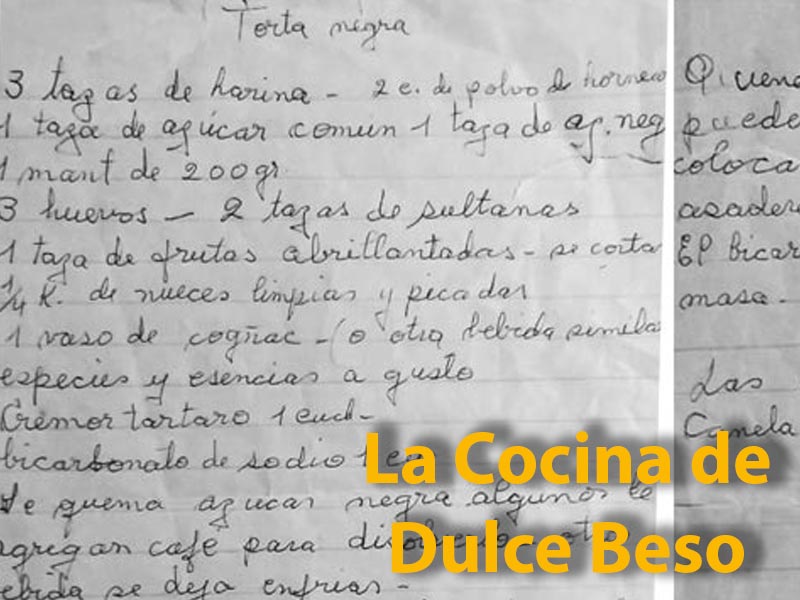 Torta negra
3 tazas de harina - 2 c. de polvo de hornear
1 taza de azúcar común 1 taza de az. neg
1 mant de 200gr
3 huevos - 2 tazas de sultanas
1 taza de frutas abrillantadas - se corta
1/4 K. de nueces limpias y picadas
1 vaso de cogñac - (o otra bebida simila
especies y esencias a gusto
Cremor tartaro 1 cucd-
bicarbonato de sodio 1 cu
Se quema azucar negra algunos le
agregan café para disolverlo - otr
ebida se deja enfriar -
puede
coloca
asader
El bicar
masa -
Las
Camela
La Cocina de
Dulce Beso